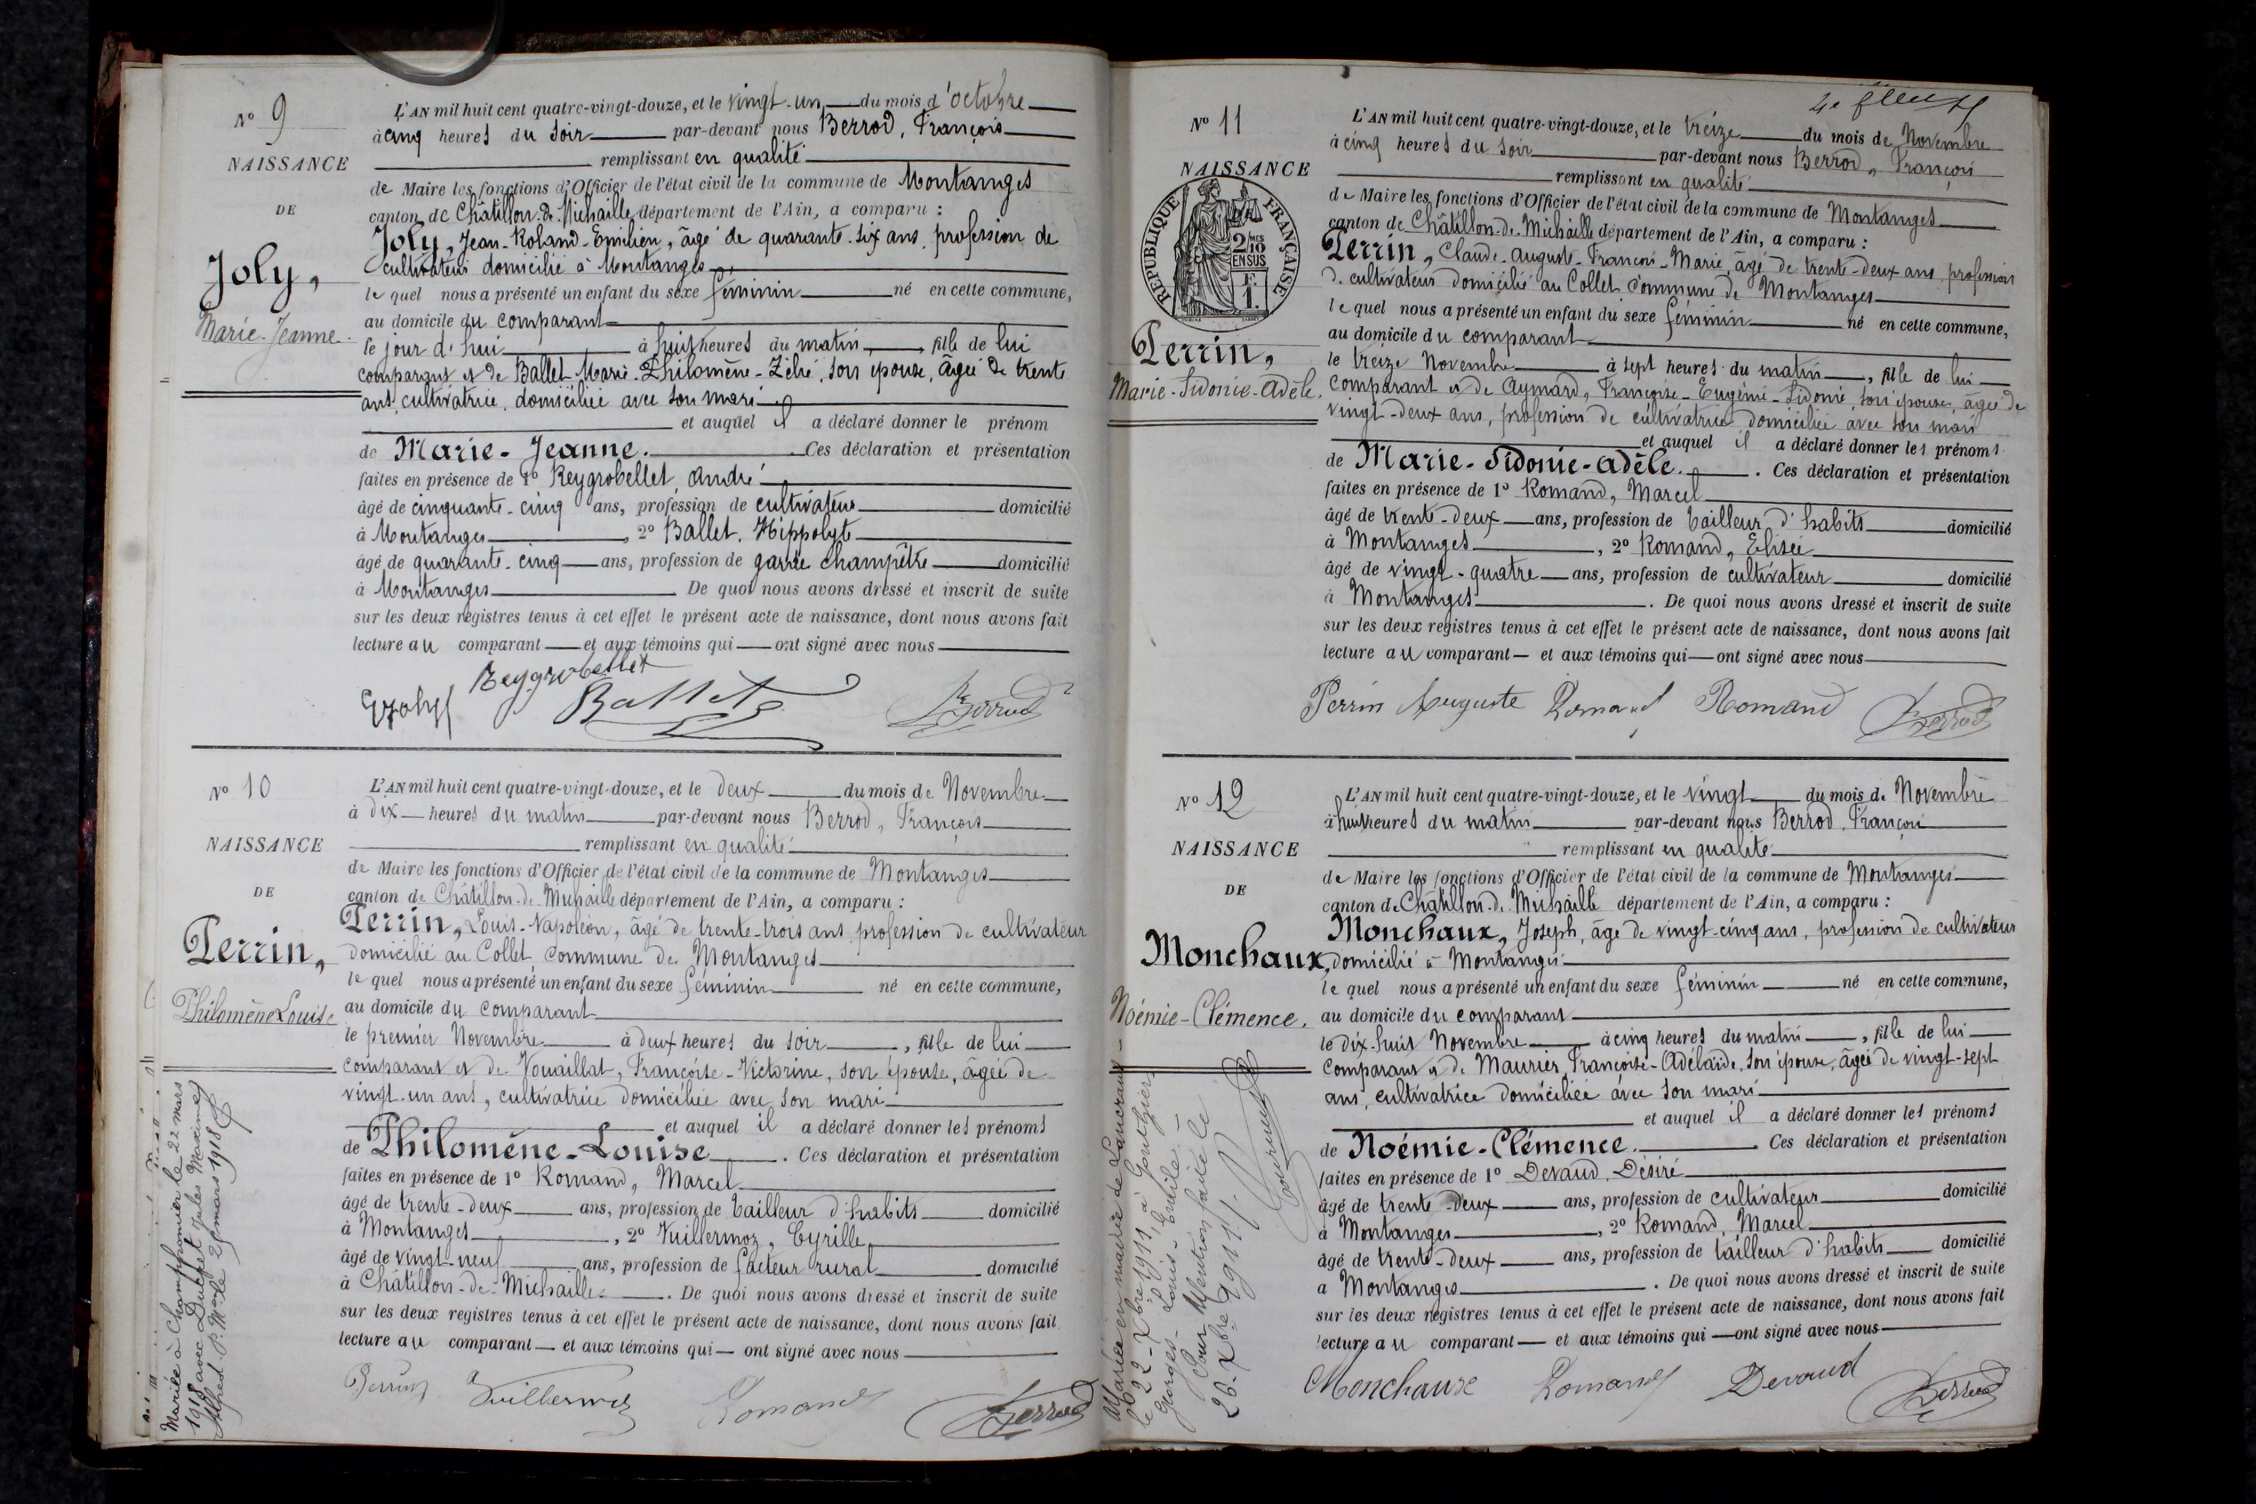 N° 9
NAISSANCE
DE
Joly,
Marie-Jeanne.
L'AN mil huit cent quatre-vingt-douze, et le vingt-un du mois d'octobre
à cinq heures du soir par-devant nous Berrod, François
remplissant en qualité
de Maire les fonctions d'Officier de l'état civil de la commune de Montanges
canton de Châtillon-de-Michaille, département de l'Ain, a comparu :
Joly, Jean-Roland-Emilien, âgé de quarante-six ans, profession de
cultivateur domicilié à Montanges
le quel nous a présenté un enfant du sexe féminin né en cette commune,
au domicile du comparant
le jour d'hui à huit heures du matin, fille de lui
comparant et de Ballet Marie-Philomène-Zélie, son épouse, âgée de trente
ans, cultivatrice, domiciliée avec son mari
et auquel il a déclaré donner le prénom
de Marie-Jeanne. Ces déclaration et présentation
faites en présence de 1° Reygrobellet, André
âgé de cinquante-cinq ans, profession de cultivateur domicilié
à Montanges, 2° Ballet, Hippolyte
âgé de quarante-cinq ans, profession de garde champêtre domicilié
à Montanges De quoi nous avons dressé et inscrit de suite
sur les deux registres tenus à cet effet le présent acte de naissance, dont nous avons fait
lecture au comparant et aux témoins qui ont signé avec nous
Reygrobellet
Joly Ballet Berrod
N° 10
NAISSANCE
DE
Perrin,
Philomène Louise
L'AN mil huit cent quatre-vingt-douze, et le deux du mois de Novembre
à dix heures du matin par-devant nous Berrod, François
remplissant en qualité
de Maire les fonctions d'Officier de l'état civil de la commune de Montanges
canton de Châtillon-de-Michaille département de l'Ain, a comparu :
Perrin, Louis-Napoléon, âgé de trente-trois ans, profession de cultivateur
domicilié au Collet, commune de Montanges
le quel nous a présenté un enfant du sexe féminin né en cette commune,
au domicile du comparant
le premier Novembre à deux heures du soir, fille de lui
comparant et de Vouaillat, Françoise-Victorine, son épouse, âgée de
vingt-un ans, cultivatrice domiciliée avec son mari
et auquel il a déclaré donner les prénoms
de Philomène-Louise. Ces déclaration et présentation
faites en présence de 1° Romand, Marcel
âgé de trente-deux ans, profession de tailleur d'habits domicilié
à Montanges, 2° Vuillermoz, Cyrille,
âgé de vingt-neuf ans, profession de facteur rural domicilié
à Châtillon-de-Michaille. De quoi nous avons dressé et inscrit de suite
sur les deux registres tenus à cet effet le présent acte de naissance, dont nous avons fait
lecture au comparant et aux témoins qui ont signé avec nous
Perrin Vuillermoz Romand Berrod
Mariée à Champfromier le 22 mars
1918 avec Ducret Jules Maxime
Alfred P. Mle 25 mars 1918
4e feuillet
N° 11
NAISSANCE
REPUBLIQUE FRANÇAISE
2/10 MES
EN SUS
F.
1.
Perrin,
Marie-Sidonie-Adèle.
L'AN mil huit cent quatre-vingt-douze, et le treize du mois de Novembre
à cinq heures du soir par-devant nous Berrod, François
remplissant en qualité
de Maire les fonctions d'Officier de l'état civil de la commune de Montanges
canton de Châtillon-de-Michaille département de l'Ain, a comparu :
Perrin, Claude-Auguste-François-Marie, âgé de trente-deux ans, profession
de cultivateur domicilié au Collet commune de Montanges
le quel nous a présenté un enfant du sexe féminin né en cette commune,
au domicile du comparant
le treize Novembre à sept heures du matin, fille de lui
comparant et de Aymard, Françoise-Eugénie-Sidonie, son épouse, âgée de
vingt-deux ans, profession de cultivatrice domiciliée avec son mari
et auquel il a déclaré donner les prénoms
de Marie-Sidonie-Adèle. Ces déclaration et présentation
faites en présence de 1° Romand, Marcel
âgé de trente-deux ans, profession de tailleur d'habits domicilié
à Montanges, 2° Romand, Elisée
âgé de vingt-quatre ans, profession de cultivateur domicilié
à Montanges. De quoi nous avons dressé et inscrit de suite
sur les deux registres tenus à cet effet le présent acte de naissance, dont nous avons fait
lecture au comparant et aux témoins qui ont signé avec nous
Perrin Auguste Romand Romand Berrod
N° 12
NAISSANCE
DE
Monchaux,
Noémie-Clémence.
L'AN mil huit cent quatre-vingt-douze, et le vingt du mois de Novembre
à huit heures du matin par-devant nous Berrod, François
remplissant en qualité
de Maire les fonctions d'Officier de l'état civil de la commune de Montanges
canton de Châtillon-de-Michaille département de l'Ain, a comparu :
Monchaux, Joseph, âgé de vingt-cinq ans, profession de cultivateur
domicilié à Montanges
le quel nous a présenté un enfant du sexe féminin né en cette commune,
au domicile du comparant
le dix-huit Novembre à cinq heures du matin, fille de lui
comparant et de Maurier, Françoise-Adélaïde, son épouse, âgée de vingt-sept
ans, cultivatrice domiciliée avec son mari
et auquel il a déclaré donner les prénoms
de Noémie-Clémence. Ces déclaration et présentation
faites en présence de 1° Devaud, Désiré
âgé de trente-deux ans, profession de cultivateur domicilié
à Montanges, 2° Romand, Marcel
âgé de trente-deux ans, profession de tailleur d'habits domicilié
à Montanges. De quoi nous avons dressé et inscrit de suite
sur les deux registres tenus à cet effet le présent acte de naissance, dont nous avons fait
lecture au comparant et aux témoins qui ont signé avec nous
Monchaux Romand Devaud Berrod
Mariée en mairie de Lancrans
le 22 Xbre 1911 à Gonthier
Georges-Louis-Emile.
Pour Mention faite le
26 Xbre 1911.